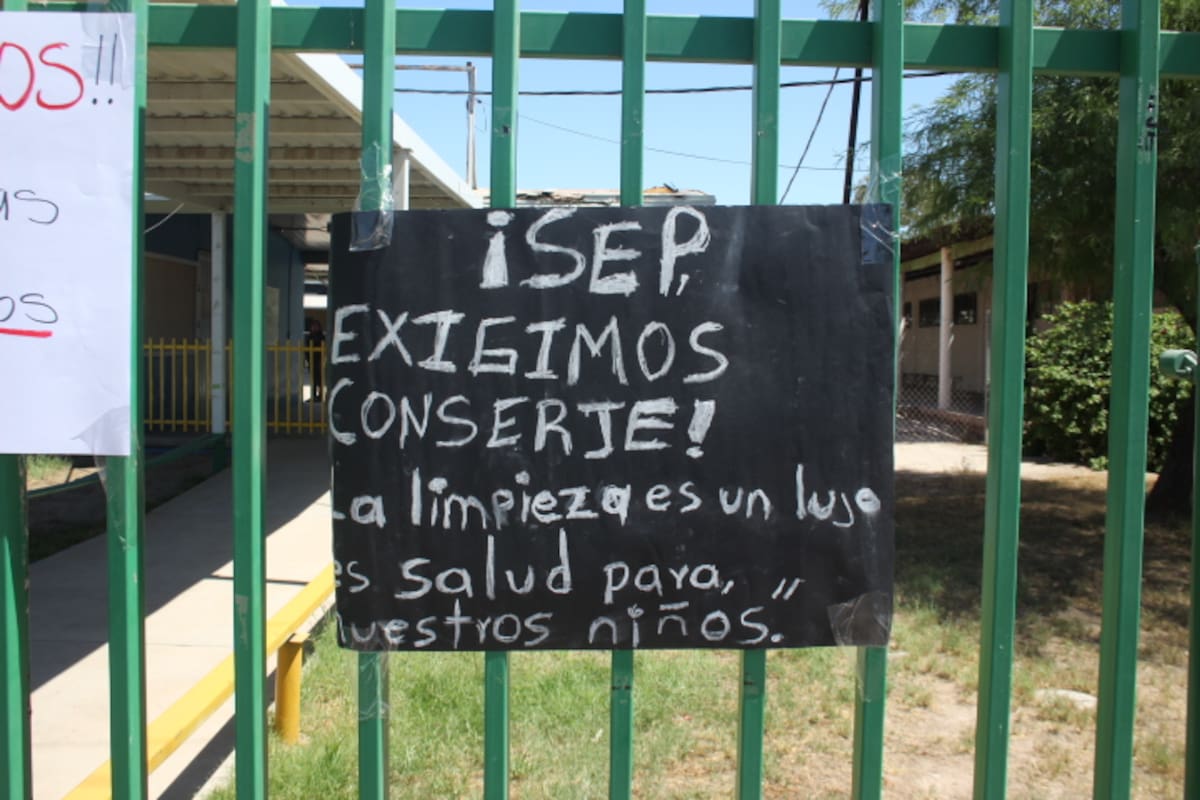 OS!!
as
os
¡SEP,
EXIGIMOS
CONSERJE!
La limpieza es un lujo
es salud para,
nuestros niños."